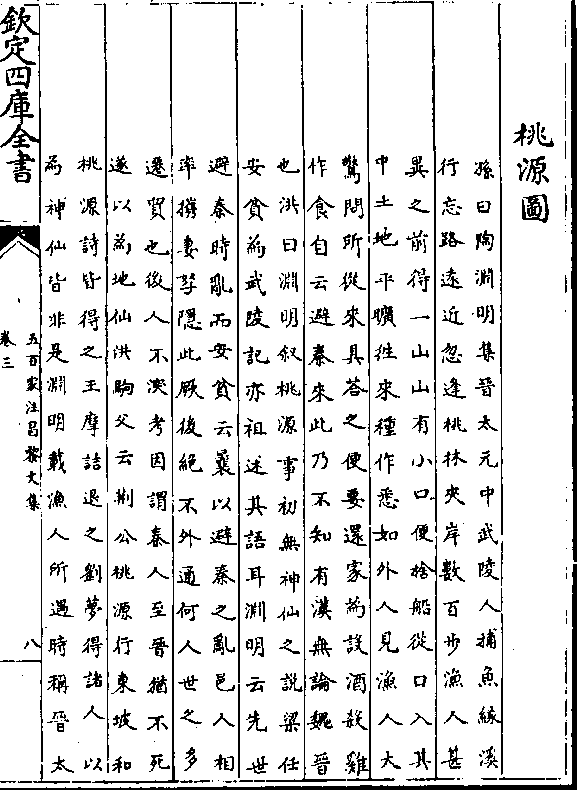 桃源圖
孫曰陶淵明集晉太元中武陵人捕魚緣溪
行忘路遠近忽逢桃林夾岸數百步漁人甚
異之前得一山山有小口便捨船從口入其
中土地平曠往來種作悉如外人見漁人大
驚問所從來具答之便要還家為設酒殺雞
作食自云避秦來此乃不知有漢無論魏晉
也洪曰淵明叙桃源事初無神仙之說梁任
安貧為武陵記亦祖述其語耳淵明云先世
避秦時亂而安貧云曩以避秦之亂邑人相
率攜妻孥隱此厥後絕不外通何人世之多
遷貿也後人不深考因謂秦人至晉猶不死
遂以為地仙洪駒父云荆公桃源行東坡和
桃源詩皆得之王摩詰退之劉夢得諸人以
為神仙皆非是淵明載漁人所遇時稱晉太
欽定四庫全書
五百家注昌黎文集
卷三
八